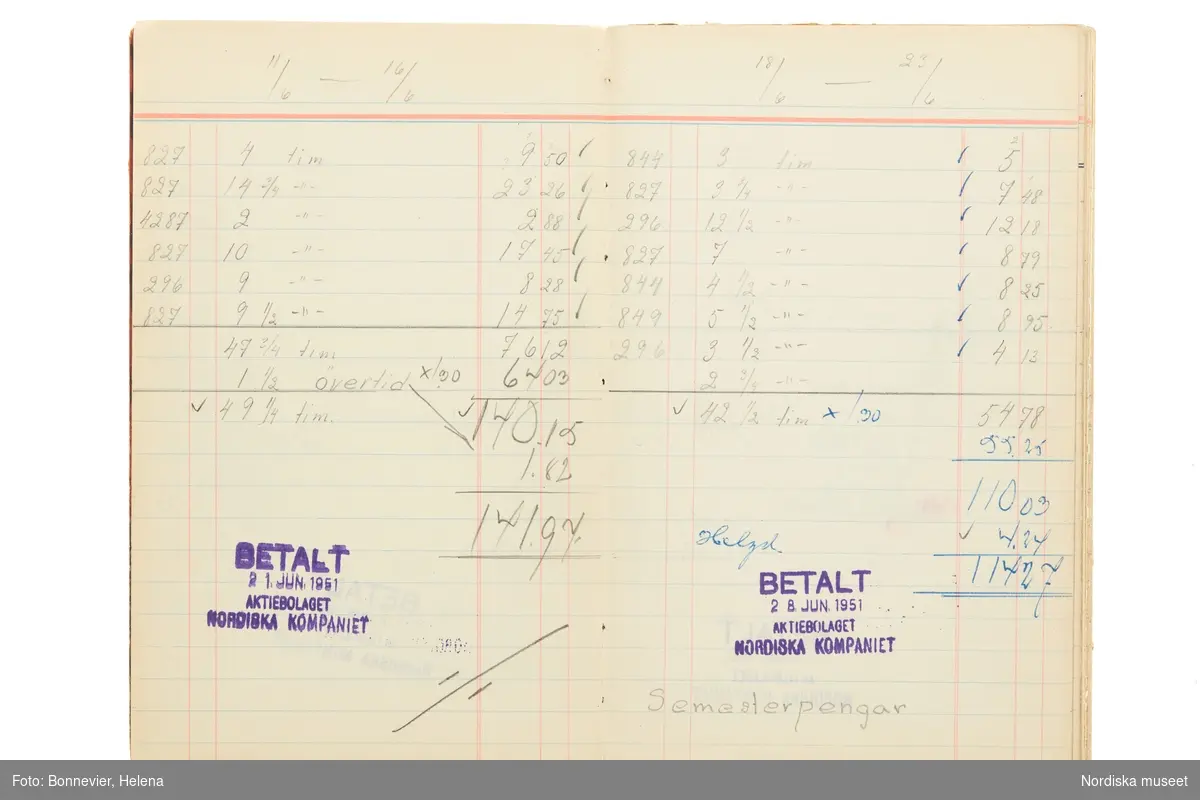 11/6 — 16/6
827 4 tim 9 50
827 14 3/4 -"- 23 26
4287 2 -"- 2 88
827 10 -"- 17 45
296 9 -"- 8 28
827 9 1/2 -"- 14 75
47 3/4 tim 76 12
1 1/2 övertid x 1/30 64 03
✓ 49 1/4 tim. ✓ 140.15
1.82
141.97.
BETALT
21. JUN. 1951
AKTIEBOLAGET
NORDISKA KOMPANIET
18/6 — 23/6
844 3 tim 5
827 3 3/4 -"- 7 48
296 12 1/2 -"- 12 18
827 7 -"- 8 79
844 4 1/2 -"- 8 25
849 5 1/2 -"- 8 95
296 3 1/2 -"- 4 13
2 3/4 -"-
✓ 42 1/2 tim x 1/30 54 78
55.25
110 03
Helgd. ✓ 4.24
114 27
BETALT
28 JUN. 1951
AKTIEBOLAGET
NORDISKA KOMPANIET
Semesterpengar
Foto: Bonnevier, Helena
Nordiska museet